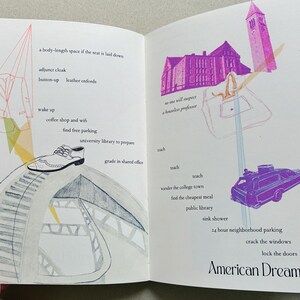 a body-length space if the seat is laid down
adjunct cloak
button-up leather cufends
wake up
coffee shop and wifi
find free parking
university library to prepare
grade in shared office
no one will suspect
a homeless professor
teach
teach
teach
wander the college town
find the cheapest meal
public library
sink shower
24 hour neighborhood parking
crack the windows
lock the doors
American Dream